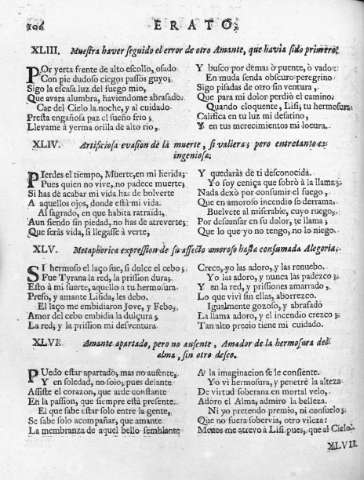 106 ERATO,
XLIII. Muestra haver seguido el error de otro Amante, que havia sido primero.
POr yerta frente de alto escollo, osado
Con pie dudoso ciegos passos guyo;
Sigo la escasa luz del fuego mio,
Que avara alumbra, haviendome abrasado.
Cae del Cielo la noche, y al cuidado
Presta engañosa paz el sueño frio;
Llevame à yerma orilla de alto rio,
Y busco por demàs ò puente, ò vado:
En muda senda obscuro peregrino
Sigo pisadas de otro sin ventura,
Que para mi dolor perdiò el camino.
Quando eloquente, Lisi, tu hermosura
Califica en tu luz mi desatino,
Y en tus merecimientos mi locura.
XLIV. Artificiosa evasion de la muerte, si valiera; pero entretanto es
ingeniosa.
PIerdes el tiempo, Muerte, en mi herida;
Pues quien no vive, no padece muerte;
Si has de acabar mi vida has de bolverte
A aquellos ojos, donde està mi vida.
Al sagrado, en que habita retraida,
Aun siendo sin piedad, no has de atreverte;
Que seràs vida, si llegasse à verte,
Y quedaràs de ti desconocida.
Yo soy ceniça que sobrò à la llama;
Nada dexò por consumir el fuego,
Que en amoroso incendio se derrama.
Buelvete al miserable, cuyo ruego,
Por descansar en su dolor, te llama;
Que lo que yo no tengo, no lo niego.
XLV. Metaphorica expression de su affecto amoroso hasta consumada Alegoria.
SI hermoso el laço fue, si dulce el cebo;
Fue Tyrana la red, la prission dura;
Esto à mi suerte, aquello à tu hermosura,
Preso, y amante Lisida, les debo.
El laço me embidiaron Jove, y Febo;
Amor del cebo embidia la dulçura;
La red, y la prission mi desventura.
Creco, yo las adoro, y las renuebo.
Yo las adoro, y nunca las padezco;
Y en la red, y prissiones amarrado,
Lo que vivì sin ellas, aborrezco.
Igualmente gozoso, y abrasado
La llama adoro, y el incendio crezco;
Tan alto precio tiene mi cuidado.
XLVI. Amante apartado, pero no ausente, Amador de la hermosura del
alma, sin otro deseo.
PUedo estàr apartado, mas no ausente,
Y en soledad, no solo; pues delante
Assiste el corazon, que arde constante
En la passion, que siempre està presente.
El que sabe estar solo entre la gente,
Se sabe solo acompañar, que amante
La membranza de aquel bello semblante
A la imaginacion se le consiente.
Yo vì hermosura, y penetrè la alteza
De virtud soberana en mortal velo,
Adoro el Alma, admiro la belleza.
Ni yo pretendo premio, ni consuelo;
Que no fuera sobervia, otro vileza:
Menos me atrevo à Lisi pues, que al Cielo.
XLVII.